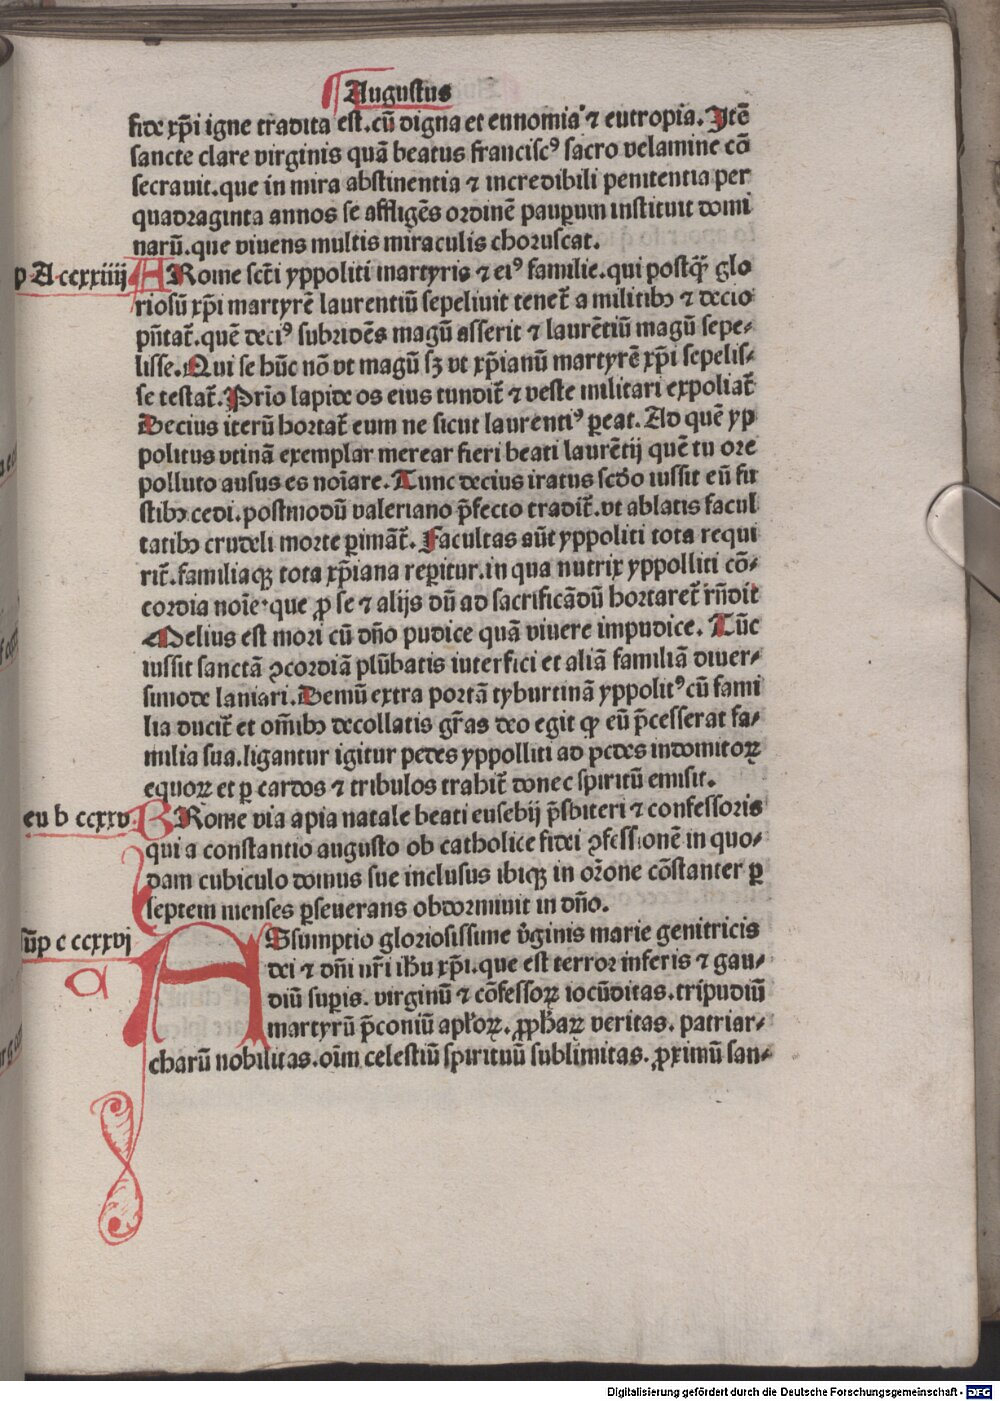 Augustus
fide xp̄i igne tradita est. cū digna et eunomia ⁊ eutropia. Itē
sancte clare virginis quā beatus francisc⁹ sacro velamine cō
secrauit. que in mira abstinentia ⁊ incredibili penitentia per
quadraginta annos se affligēs ordinē pauꝑum instituit domi
narū. que viuens multis miraculis choruscat.
p A ccxxiiij
A Rome scti yppoliti martyris ⁊ ei⁹ familie. qui postq̄ȝ glo
riosū xp̄i martyrē laurentiū sepeliuit tenet̄ a militibꝰ ⁊ decio
pn̄tat̄. quē deci⁹ subridēs magū asserit ⁊ laurētiū magū sepe⸗
lisse. Qui se hūc nō vt magū sꝫ vt xp̄ianū martyrē xp̄i sepelis⸗
se testat̄. Prīo lapide os eius tundit̄ ⁊ veste militari expoliat̄
Decius iterū hortat̄ eum ne sicut laurenti⁹ ꝑeat. Ad quē yp
politus vtinā exemplar merear fieri beati laurētij quē tu ore
polluto ausus es noīare. Tunc decius iratus scd̄o iussit eū fu
stibꝰ cedi. postmodū valeriano p̄fecto tradit̄. vt ablatis facul
tatibꝰ crudeli morte ꝑimat̄. Facultas aūt yppoliti tota requi
rit̄. familiaqꝫ tota xp̄iana reꝑitur. in qua nutrix yppolliti cō⸗
cordia noīe. que ꝓ se ⁊ alijs dū ad sacrificādū hortaret̄ rn̄dit
Melius est mori cū dn̄o pudice quā viuere impudice. Tūc
iussit sanctā ꝯcordiā plūbatis interfici et aliā familiā diuer⸗
simode laniari. Demū extra portā tyburtinā yppolit⁹ cū fami
lia ducit̄ et om̄ibꝰ decollatis gr̄as deo egit ꝙ eū p̄cesserat fa⸗
milia sua. ligantur igitur pedes yppolliti ad pedes indomitoꝝ
equoꝝ et ꝑ cardos ⁊ tribulos trahit̄ donec spiritū emisit.
eu b ccxxv
B Rome via apia natale beati eusebij p̄sbiteri ⁊ confessoris
qui a constantio augusto ob catholice fidei ꝯfessionē in quo⸗
dam cubiculo domus sue inclusus ibiqꝫ in or̄one cōstanter ꝑ
septem menses ꝑseuerans obdormiuit in dn̄o.
sūp c ccxxvj
a
ASsumptio gloriosissime v̄ginis marie genitricis
dei ⁊ dn̄i nr̄i ihū xp̄i. que est terror inferis ⁊ gau⸗
diū suꝑis. virginū ⁊ cōfessoꝝ iocūditas. tripudiū
martyrū p̄coniū apl̄oꝝ. ꝓphaꝝ veritas. patriar⸗
charū nobilitas. oīm celestiū spirituū sublimitas. ꝓximū san⸗
Digitalisierung gefördert durch die Deutsche Forschungsgemeinschaft - DFG